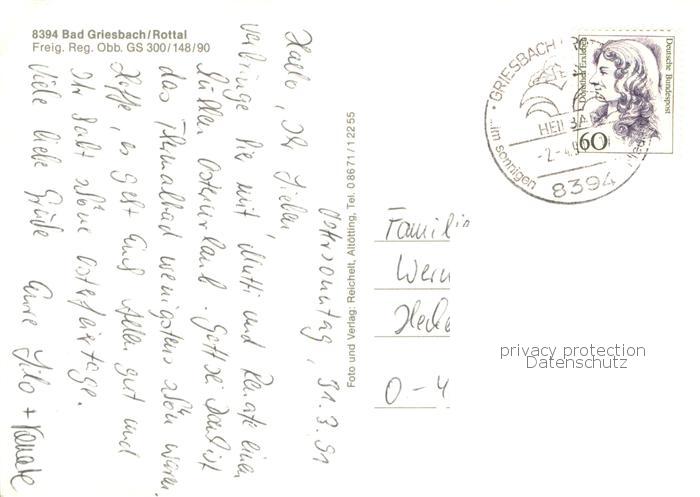 8394 Bad Griesbach/Rottal
Freig. Reg. Obb. GS 300/148/90
Ostersonntag, 31.3.91
Hallo, Ihr Lieben,
verbringe hier mit Mutti und Renate einen
Osterurlaub. Gott sei Dank ist
das Thermalbad wenigstens schön warm.
Hoffe, es geht Euch allen gut und
Ihr habt schöne Osterfeiertage.
Viele liebe Grüße Eure
+ Renate
Foto und Verlag: Reichelt, Altötting, Tel. 08671/12255
GRIESBACH
HEILBA
-2-4.9
...im sonnigen
8394
Deutsche Bundespost
Dorothea Erxleben
60
Famili
Wern
Hecke
O-4
privacy protection
Datenschutz